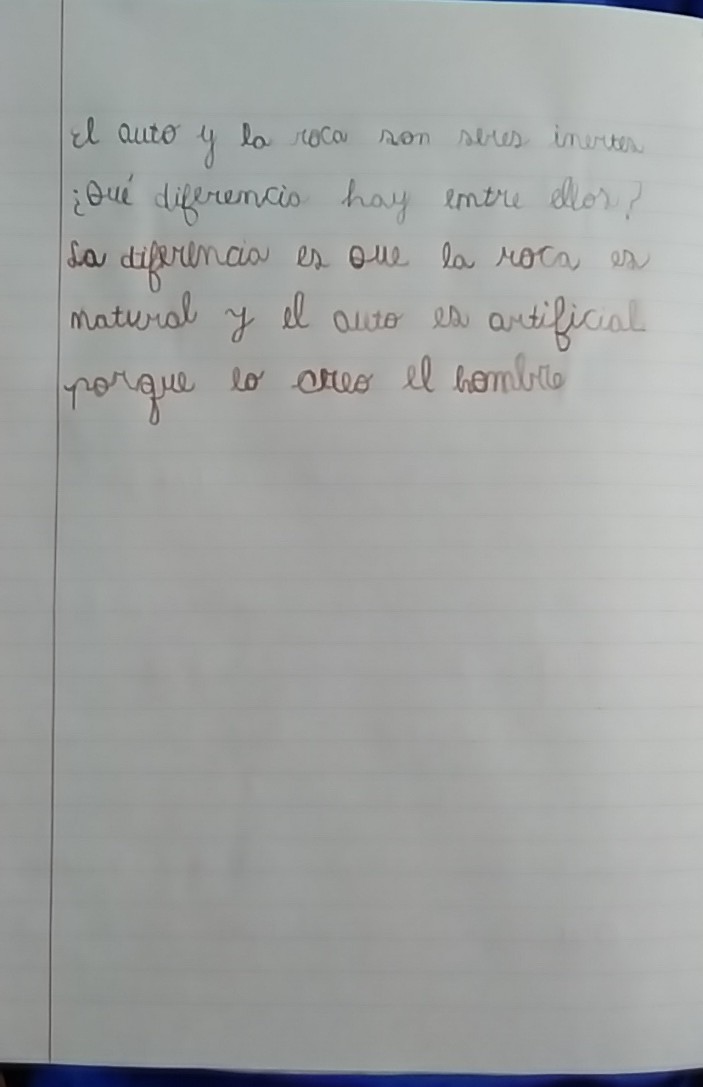 El auto y la roca son seres inertes
¿Qué diferencia hay entre ellos?
La diferencia es que la roca es
natural y el auto es artificial
porque lo creo el hombre